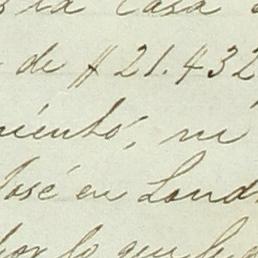 esta Casa
de $ 21.432
miento, ni
José en Lond
por lo que